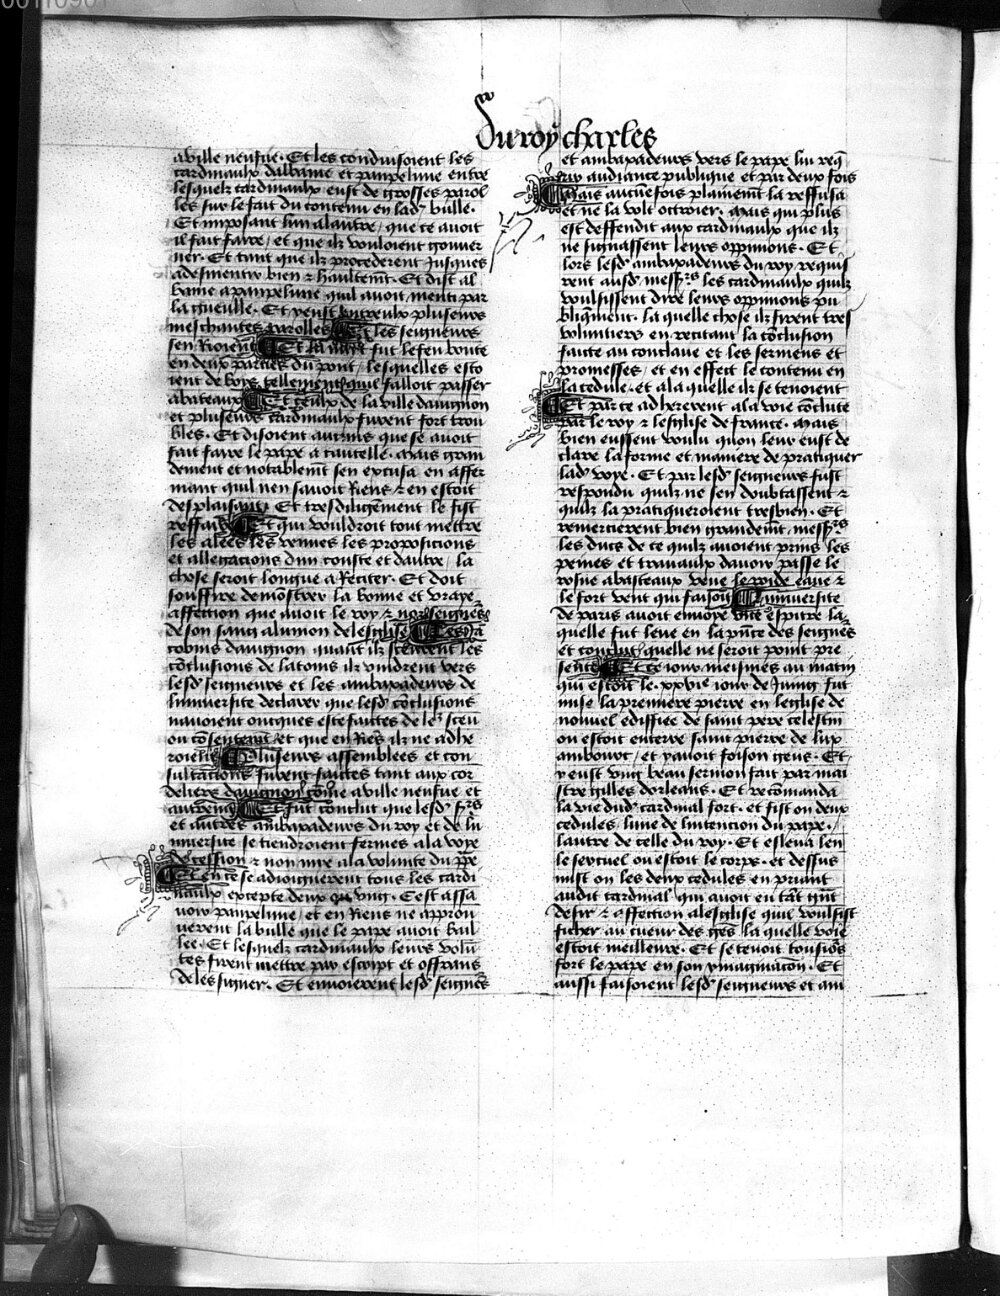 Du roy charles
aville neufue. Et les conduisoient les
cardinaulx dalbanie et pampelune entre
lesquelz cardinaulx eust de grosses parol
les sur le fait du contenu en lad bulle.
Et imposant lun a lautre / que ce auoit
il fait faire / et que ilz vouloient gouuer
ner. Et tant que ilz procederent jusques
a desmentir bien & haultemt. Et dist al
banie a pampelune quil auoit menti par
la gueulle. Et y eust entreulx plusieurs
meschantes parolles Et les seigneurs
sen Rioient Et la nuyt fut le feu boute
en deux parties du pont / lesquelles esto
ient de boys tellement quil falloit passer
a bateaux Et ceulx de la ville dauignon
et plusieurs cardinaulx furent fort trou
bles. Et disoient aucuns que se auoit
fait faire le pape a cautelle. Mais gran
dement et notablemt sen excusa en affer
mant quil nen sauoit Riens & en estoit
desplaisant Et tresdiligement le fist
reffaire Et qui vouldroit tout mettre
les alees les venues les proposicions
et allegacions dun couste et dautre / la
chose seroit longue a Reciter. Et doit
souffire demostrer la bonne et vraye
affection que auoit le roy & nos seigners
de son sang a lunion de leglise Les Ja
cobins dauignon quant ilz sceurent les
coclusions de latoins ilz vindrent vers
lesd seigneurs et les ambaxadeurs de
luniuersite declairer que lesd coclusions
nauoient oncques este faictes de le sceu
ou cosentemt et que en Ries ilz ne adhe
roient Plusieurs assemblees et con
sultacions furent faictes tant aux cor
deliers dauignon come a ville neufue et
autrepart Et fut conclut que lesd srs
et autres ambaxadeurs du roy et de lu
niuersite se tiendroient fermes a la voye
de cession & non mie a la volunte du ppe
Et en ce se adioignerent tous les cardi
naulx excepte deux ou vng. Cest assa
uoir pampelune / et en Riens ne approu
uerent la bulle que le pape auoit bail
lee. Et lesquelz cardinaulx leurs volu
tes firent mettre par escript et offrans
de les signer. Et enuoierent lesd seigners
et ambaxadeurs vers le pape luy req
rir audiance publique et par deux fois
Mais aucue fois plainemt la reffusa
et ne la volt octroier. Mais qui plus
est deffendit aux cardinaulx que ilz
ne signassent leurs oppinions. Et
lors lesd ambaxadeurs du roy requis
rent ausd messrs les cardinaulx quilz
voulsissent dire leurs oppinions pu
bliquemt. la quelle chose ilz firent tres
voluntiers en recitant la coclusion
faicte au conclaue et les sermens et
promesses / et en effect le contenu en
la cedule. et a la quelle ilz se tenoient
Et par ce adhererent a la voie coclute
par le roy & lesglise de france. Mais
bien eussent voulu quon leur eust de
claire la forme et maniere de pratiquer
lad voye. Et par lesd seigneurs fust
respondu quilz ne sen doubtassent &
quilz la pratiqueroient tresbien. Et
remercierent bien grandemt messrs
les ducs de ce quilz auoient prins les
peines et trauaulx dauoir passe le
rosne a basteaux veue le roide eaue &
le fort vent qui faisoit Luniuersite
de paris auoit enuoye vne epistre la
quelle fut leue en la pnce des seigners
et conclut quelle ne seroit point pre
sentee Et ce iour meismes au matin
qui estoit le xxvie iour de Juing fut
mise la premiere pierre en leglise de
nouuel ediffiee de saint pere celestin
ou estoit enterre saint pierre de lux
ambourc / et y auoit foison gens. Et
y eust vng beau sermon fait par mai
stre gilles dorleans. Et recomanda
la vie dud cardinal fort. et fist on deux
cedules / lune de lintencion du pape.
lautre de celle du roy. Et esleua len
le sercuel ou estoit le corps. et dessus
mist on les deux cedules en priant
audit cardinal qui auoit eu tat grnt
desir & affection a lesglise quil voulsist
ficher au cueur des ges la quelle voie
estoit meilleure. Et se tenoit tousiors
fort le pape en son ymaginacon. Et
aussi faisoient lesd seigneurs et am